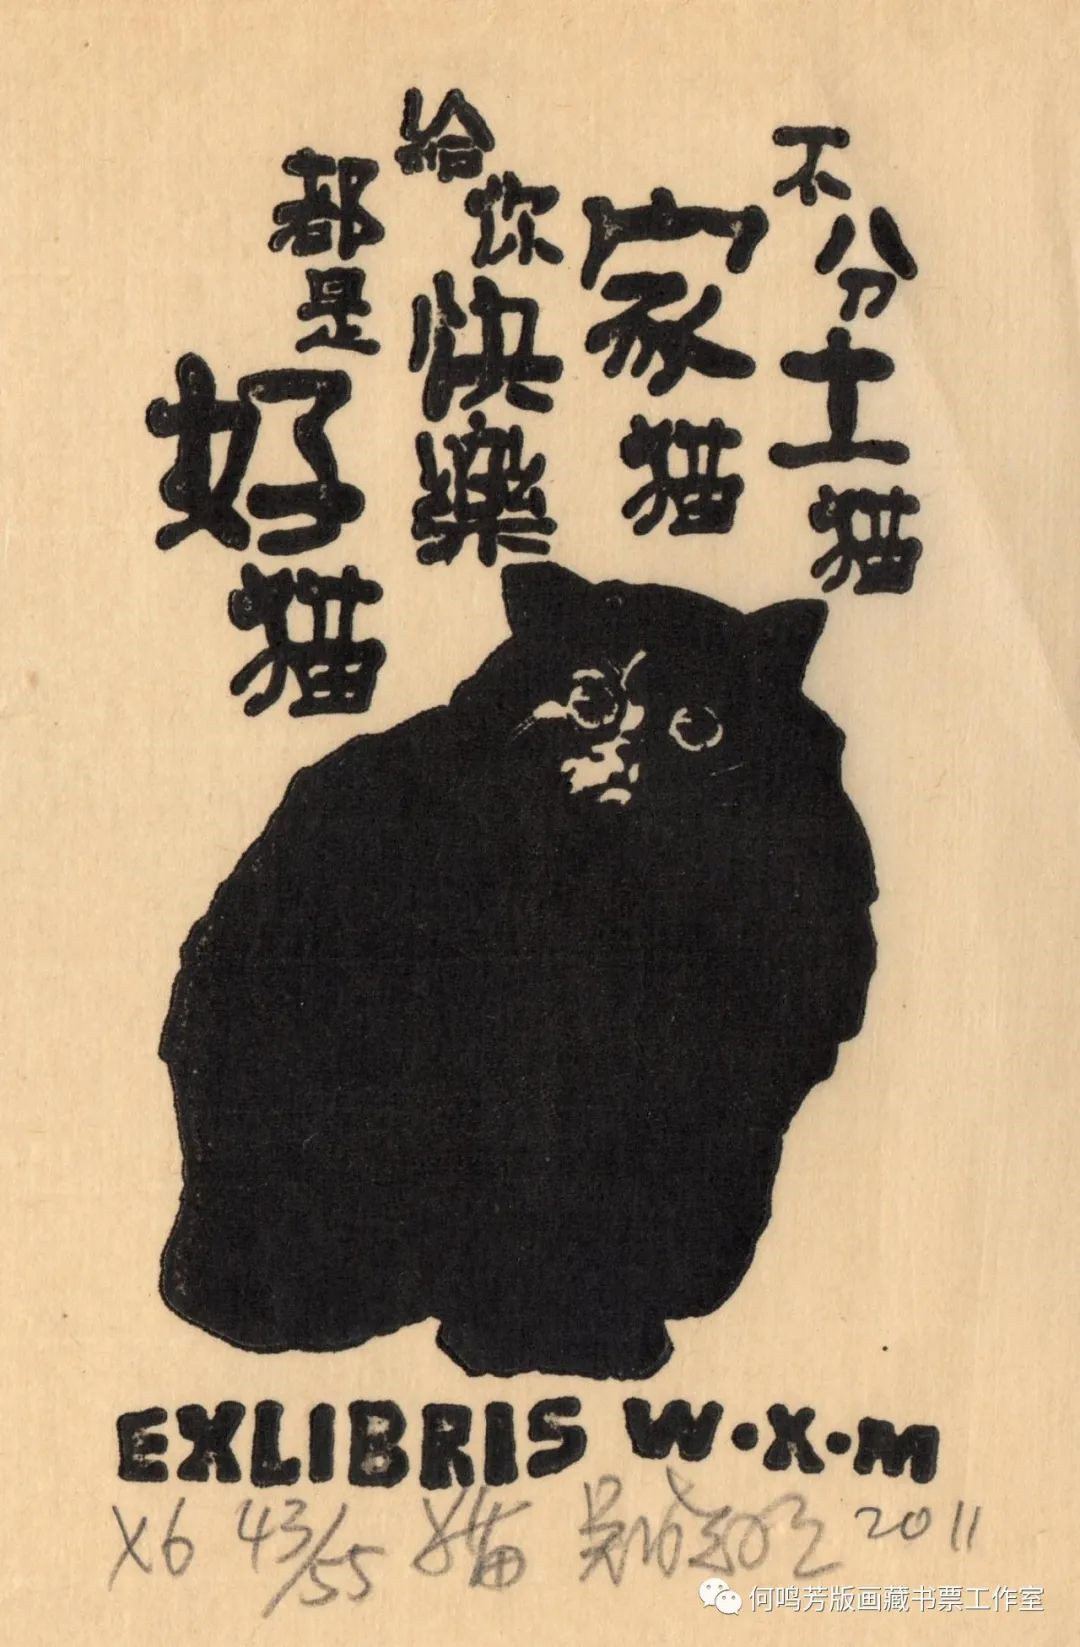 不分土猫
家猫
给你快樂
都是好猫
EXLIBRIS W·X·M
X6 43/55 猫 2011
何鸣芳版画藏书票工作室